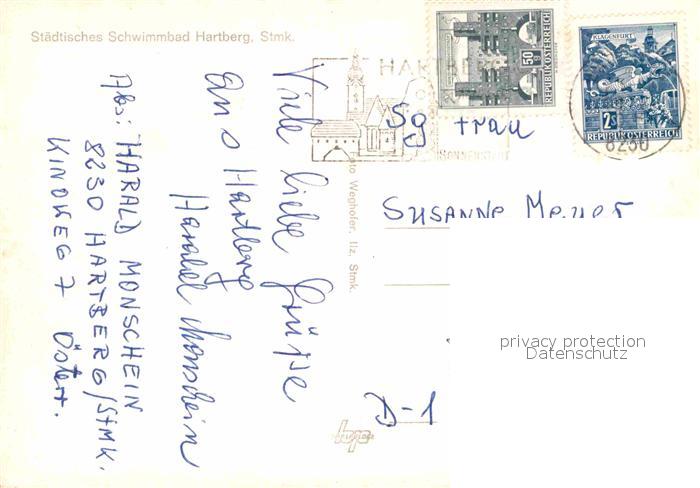 Städtisches Schwimmbad Hartberg, Stmk.
Viele liebe Grüße
aus Hartberg
Harald Monschein
Abs: HARALD MONSCHEIN
8230 HARTBERG/STMK.
KINDWEG 7 Österr.
Foto Weghofer, Ilz, Stmk.
HARTBERG
SONNENSTADT
50 g
REPUBLIK ÖSTERREICH
KLAGENFURT
2S
REPUBLIK ÖSTERREICH
8230
Sg Frau
SUSANNE
D-1
privacy protection
Datenschutz